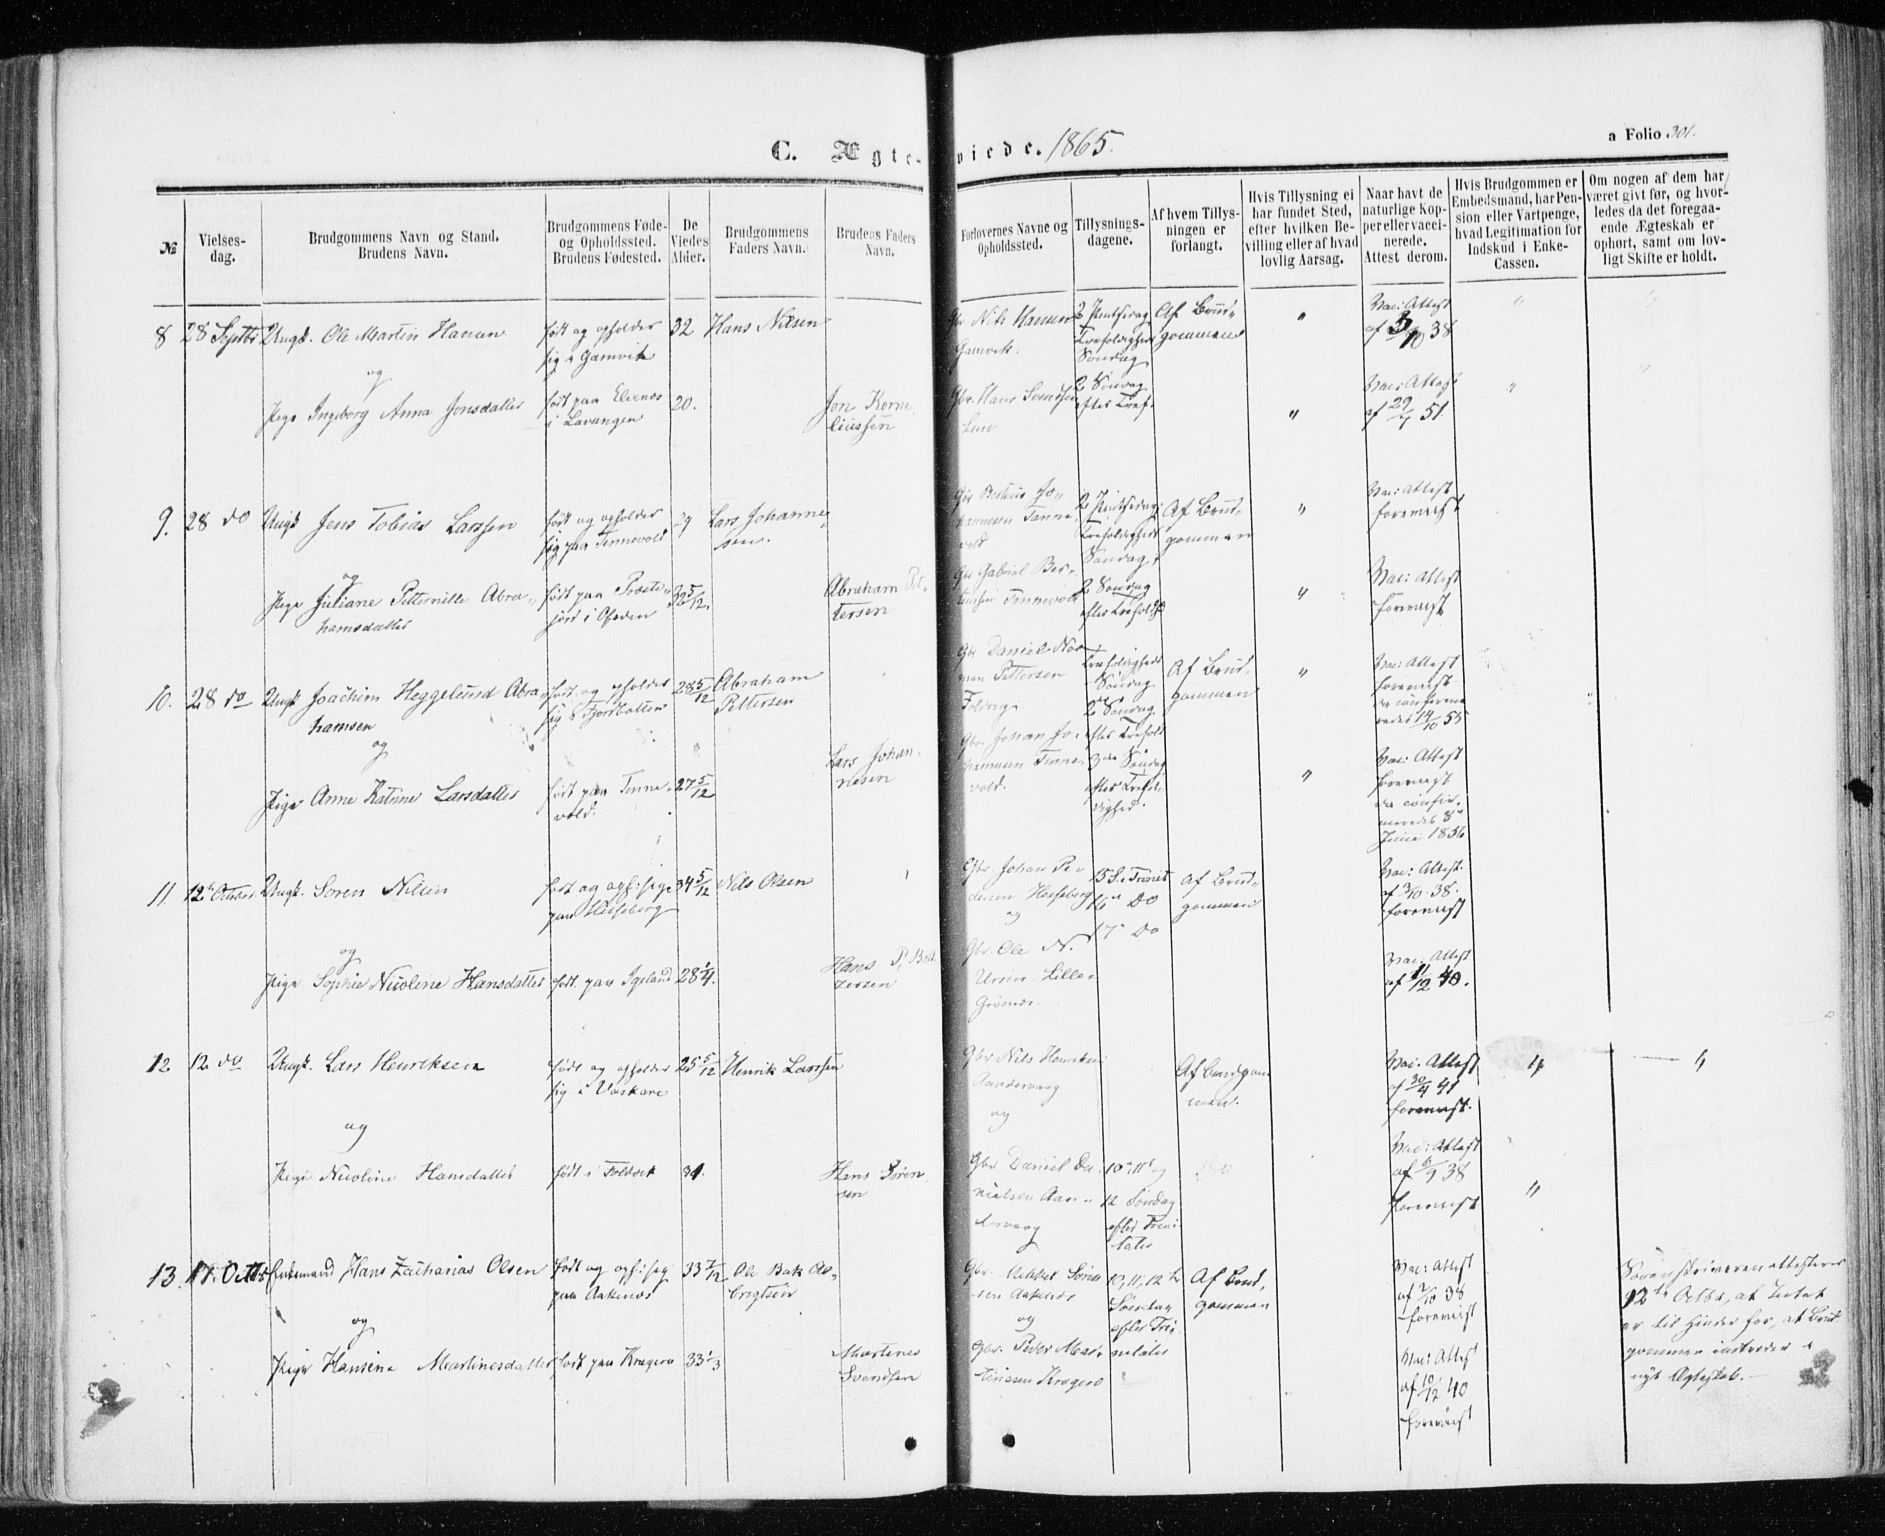 C. Ægte-viede. 1865.
a Folio 301.
№
Vielses-
dag.
Brudgommens Navn og Stand.
Brudens Navn.
Brudgommens Føde-
og Opholdssted.
Brudens Fødested.
De
Viedes
Alder.
Brudgommens
Faders Navn.
Brudens Faders
Navn.
Forlovernes Navne og
Opholdssted.
Tillysnings-
dagene.
Af hvem Tillys-
ningen er
forlangt.
Hvis Tillysning ei
har fundet Sted,
efter hvilken Be-
villing eller af hvad
lovlig Aarsag.
Naar havt de
naturlige Kop-
per eller vacci-
nerede.
Attest derom.
Hvis Brudgommen er
Embedsmand, har Pen-
sion eller Vartpenge,
hvad Legitimation for
Indskud i Enke-
Cassen.
Om nogen af dem har
været givt før, og hvor-
ledes da det foregaa-
ende Ægteskab er
ophørt, samt om lov-
ligt Skifte er holdt.
8 28 Septbr Ungk. Ole Martin Hansen
født og opholder
sig i Gamvik
32 Hans Nilsen
Gbr Nils Hansen
Gamvik.
2 Pintsedag
Trefoldigheds
Søndag
Af Brud-
gommen
"
Vac: Attest
af 3/10 38
og
Pige Ingeborg Anna Jonsdatter
født paa Elvenes
i Lavangen
20.
Jon Korne-
liussen
Gbr. Hans
2 Søndag
efter Tref.
"
Vac: Attest
af 29/7 51.
9. 28 do Ungk Jens Tobias Larssen
født og opholder
sig paa Tennevold
Lars Johanne-
sen.
Gbr
hannesen Tenne-
vold
2 Pintsedag
Trefoldigheds
Søndag
Af Brud-
gommen
"
Vac: Attest
forevist
og
Pige Juliane Petternille Abra-
hamsdatter
født paa Præste-
jord i Ofoden
32 5/12.
Abraham Pet-
tersen
Gbr Gabriel Ber-
Tennevold
2 Søndag
efter Trefoldigh
"
Vac: Attest
forevist
10. 28 do Ungk Joachim Heggelund Abra-
hamsen
født og opholder
sig i Fjordbotten
28 5/12
Abraham
Pettersen
Gbr Daniel Nor-
man Pettersen
Trefoldigheds
Søndag
2 Søndag
efter Trefold
Af Brud-
gommen
"
Vac: Attest
forevist
da confirme-
redes 14/10 55
og
Pige Anne Katrine Larsdatter
født paa Tenne-
vold.
27 5/12
Lars Johan-
nesen
Gbr. Johan Jo-
hannesen Tenne-
vold.
3die Søndag
efter Trefol-
dighed.
"
Vac: Attest
forevist
da confir-
meredes 8
Juni 1856
11. 12te Octbr Ungk. Søren Nilsen
født og oph: sig
paa Hesseberg
34 5/12 Nils Olsen
Gbr. Johan Pe-
dersen Hesseberg
og
15 S. e Trinit
16 Do
17 Do
Af Brud-
gommen
Vac: Attest.
af 3/10 38.
forevist
og
Pige Sophie Nicoline Hansdatter
født paa Igeland
28 1/4.
Hans P.
Gbr. Ole N.
Lille-
Vac: Attest
af 11/12 40.
12 12 do Ungk. Lars Henriksen
født og opholder
sig i Vaskare
25 5/12 Henrik Larssen
Gbr Nils Henriksen
Aandervaag
og
Af Brudgom
men.
Vac: Attest
af 30/4 41
forevist.
"
"
og
Pige Nicoline Hansdatter
født i Foldvik
31.
Hans Søren-
sen
Gbr Daniel Da-
nielsen Aan-
dervaag
10 11 og
12 Søndag
efter Trini-
tatis
Vac: Attest
af 6/9 38
forevist
"
13. 17. Octbr Enkemand Hans Zacharias Olsen
født og oph: sig
paa Aakenes
33 7/12 Ole Bak
Gbr. Mikkel Søren-
sen Aakenes
og
10, 11, 12te
Søndag
efter Tri-
nitatis
Af Brud-
gommen
Vac: Attest
af 2/10 38
forevist
Sorenskriveren attesterer
12te Octbr, at Intet
er til Hinder for, at Brud-
gommen indtræder i
nyt Ægteskab.
og
Pige Hansine Martinesdatter
født paa Kragerø
33 1/3
Martines
Svendsen
Gbr. Peder Mar-
tinesen Kragerø
Vac: Attest
af 10/12 40
forevist